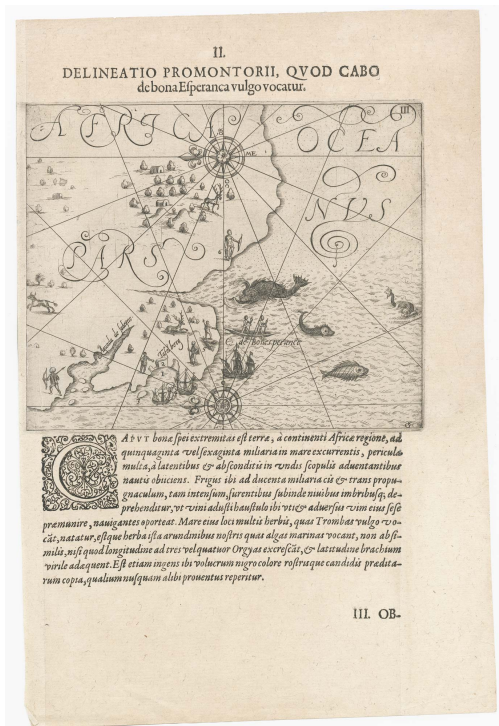 II.
DELINEATIO PROMONTORII, QVOD CABO
de bona Esperanca vulgo vocatur.
III
AFRICA
OCEA
NVS
PARS
C. de Bonesperance
CAPVT bonæ spei extremitas est terræ, à continenti Africæ regione, ad
quinquaginta vel sexaginta miliaria in mare excurrentis, pericula
multa, à latentibus & absconditis in vndis scopulis aduentantibus
nautis obiiciens. Frigus ibi ad ducenta miliaria cis & trans propu-
gnaculum, tam intensum, furentibus subinde niuibus imbribusq; de-
prehenditur, vt vini adusti haustulo ibi vti & aduersus vim eius sese
præmunire, nauigantes oporteat. Mare eius loci multis herbis, quas Trombas vulgo vo-
cãt, natatur, estque herba ista arundinibus nostris quas algas marinas vocant, non absi-
milis, nisi quod longitudine ad tres vel quatuor Orgyas excrescãt, & latitudine brachium
virile adæquent. Est etiam ingens ibi volucrum nigro colore rostrisque candidis prædita-
rum copia, qualium nusquam alibi prouentus reperitur.
III. OB-